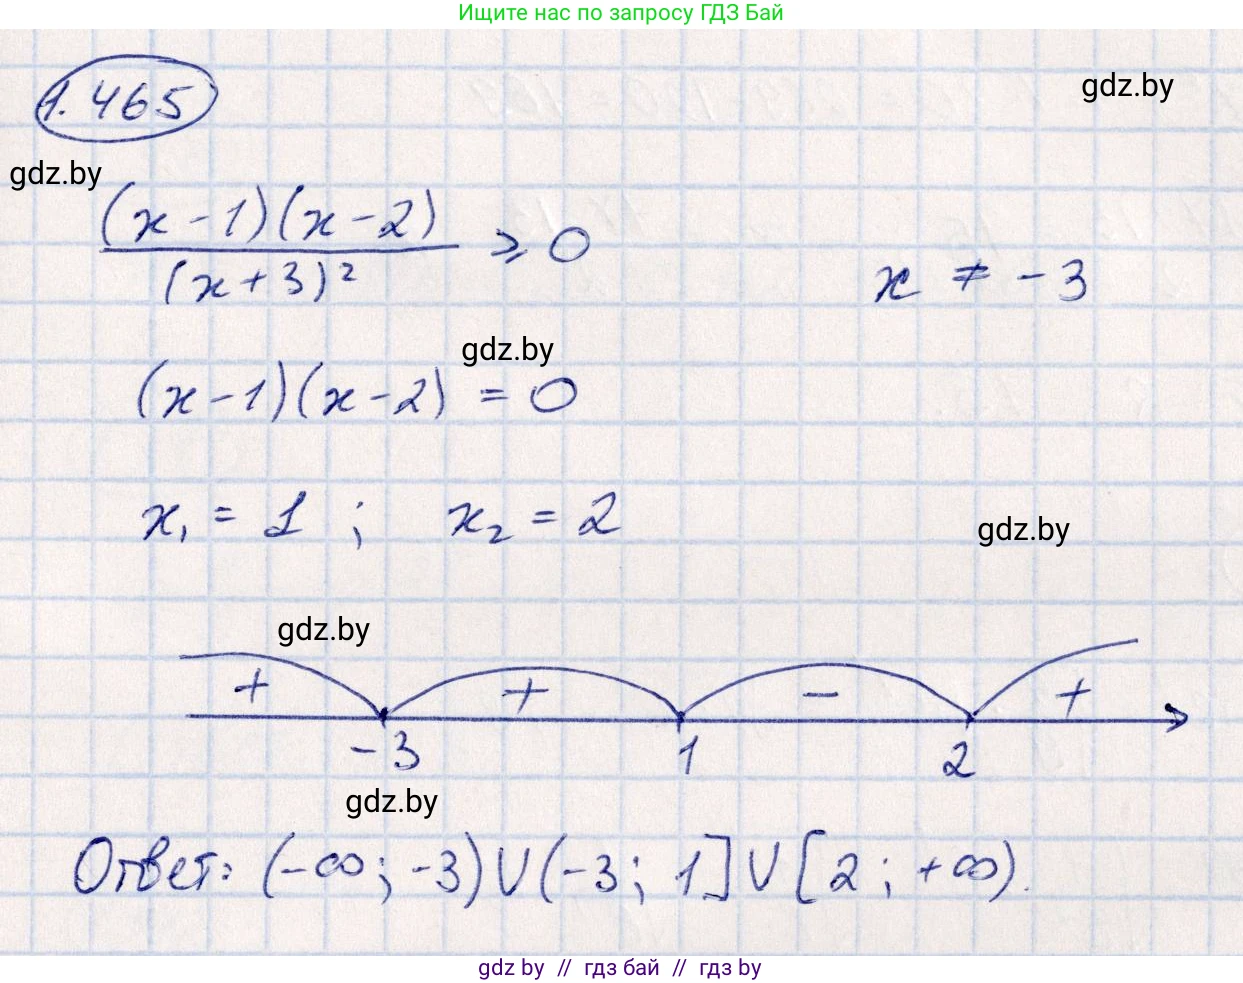 Ищите нас по запросу ГДЗ Бай
1.465
gdz.by
gdz.by
(x - 1)(x - 2)
(x + 3)² ⩾ 0
x ≠ - 3
gdz.by
(x - 1)(x - 2) = 0
x₁ = 1 ; x₂ = 2
gdz.by
gdz.by
+ + - +
- 3 1 2
gdz.by
Ответ: (-∞; -3) ∪ (-3; 1] ∪ [2; +∞).
gdz by // гдз бай // гдз by